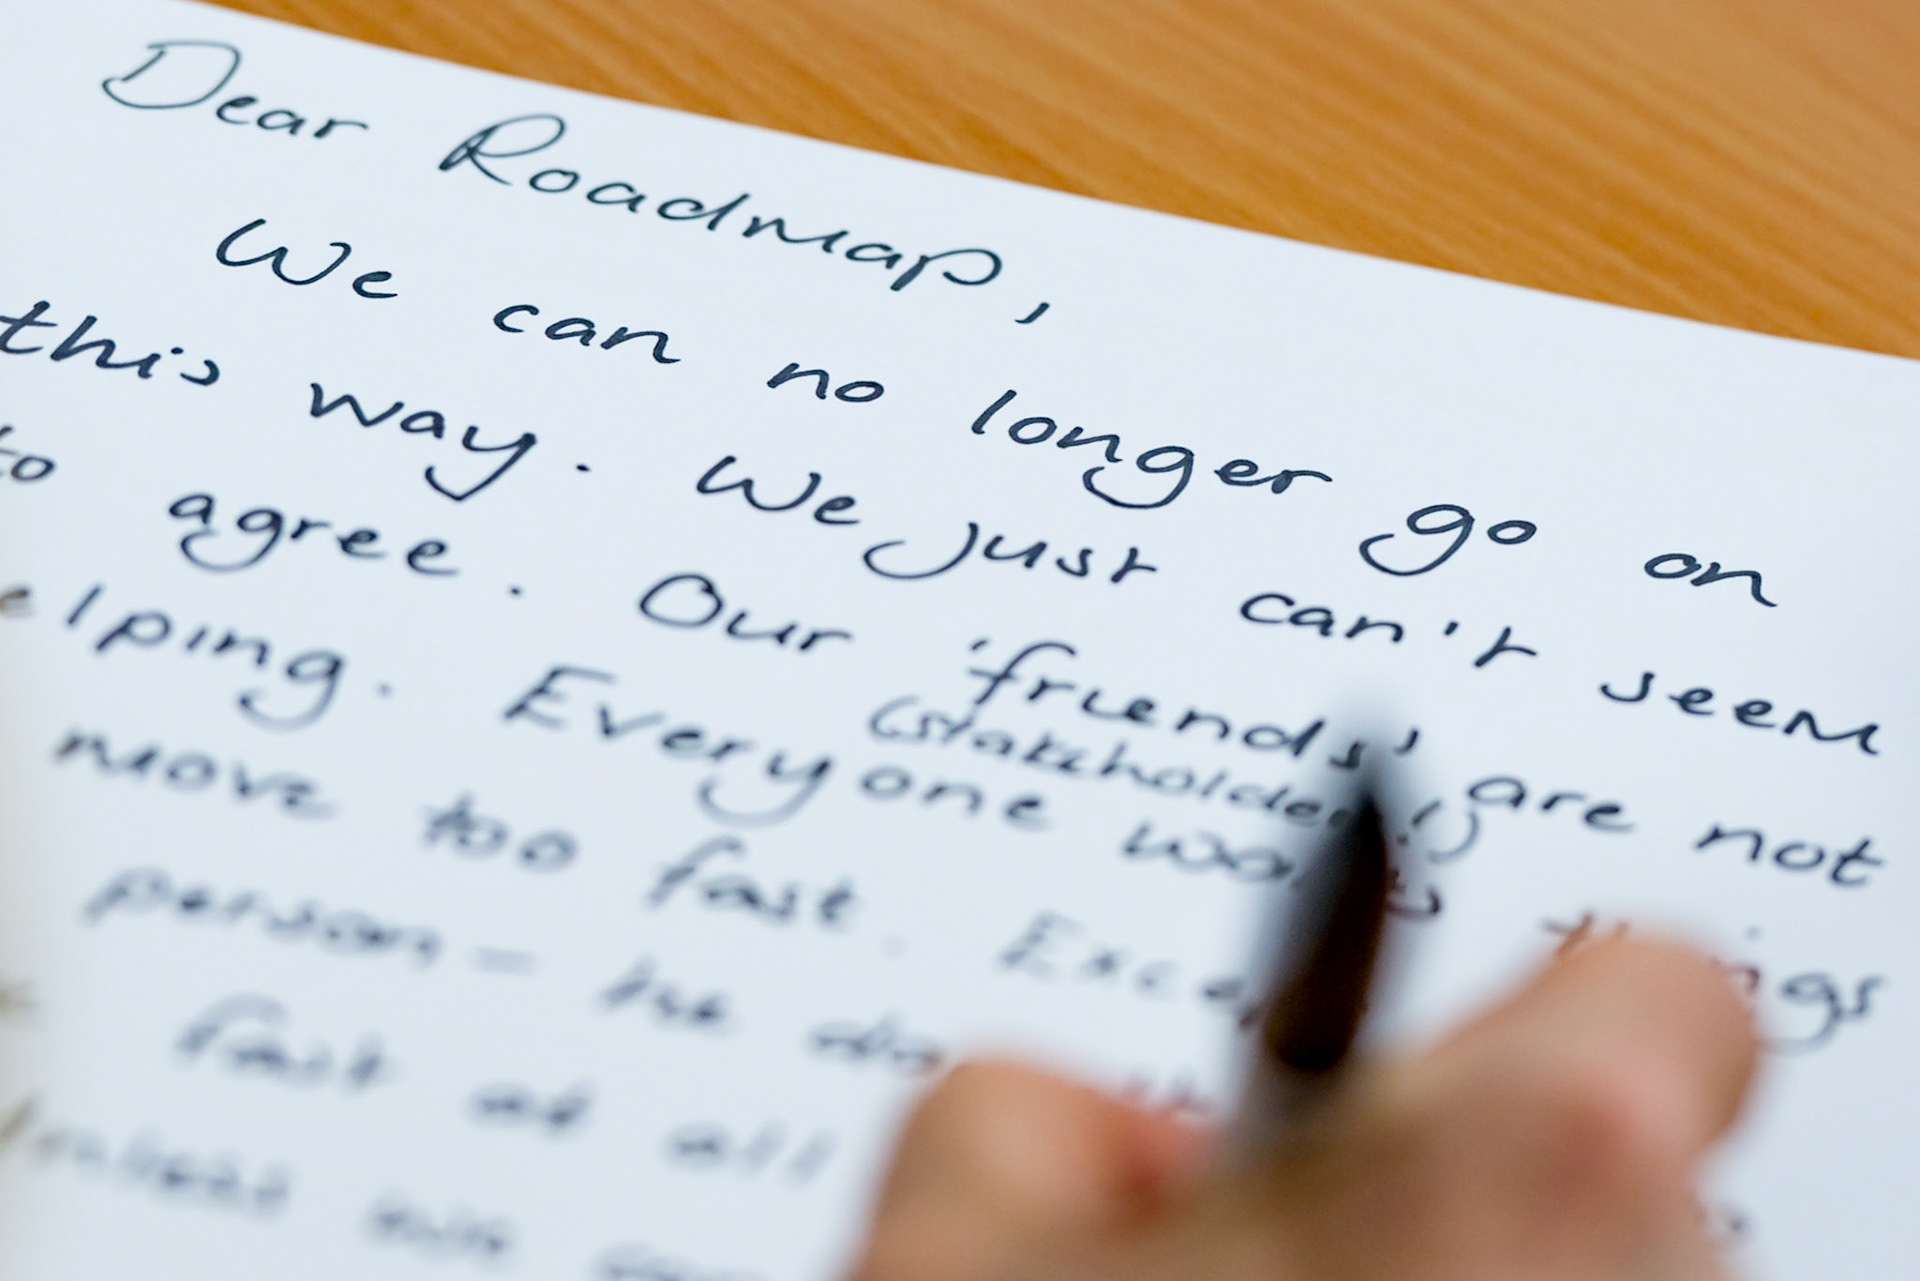 Dear Roadmap,
We can no longer go on
this way. We just can't seem
to agree. Our 'friends' are not
(stakeholders!)
elping. Everyone wants things
move too fast. Exce
person - he do
fast at all
unless we